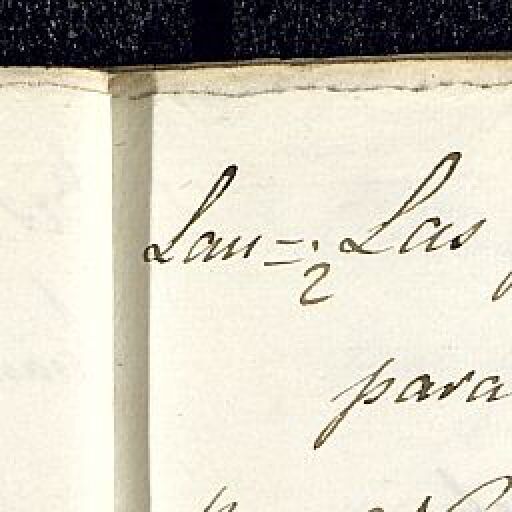 Lau=. Las
2
para